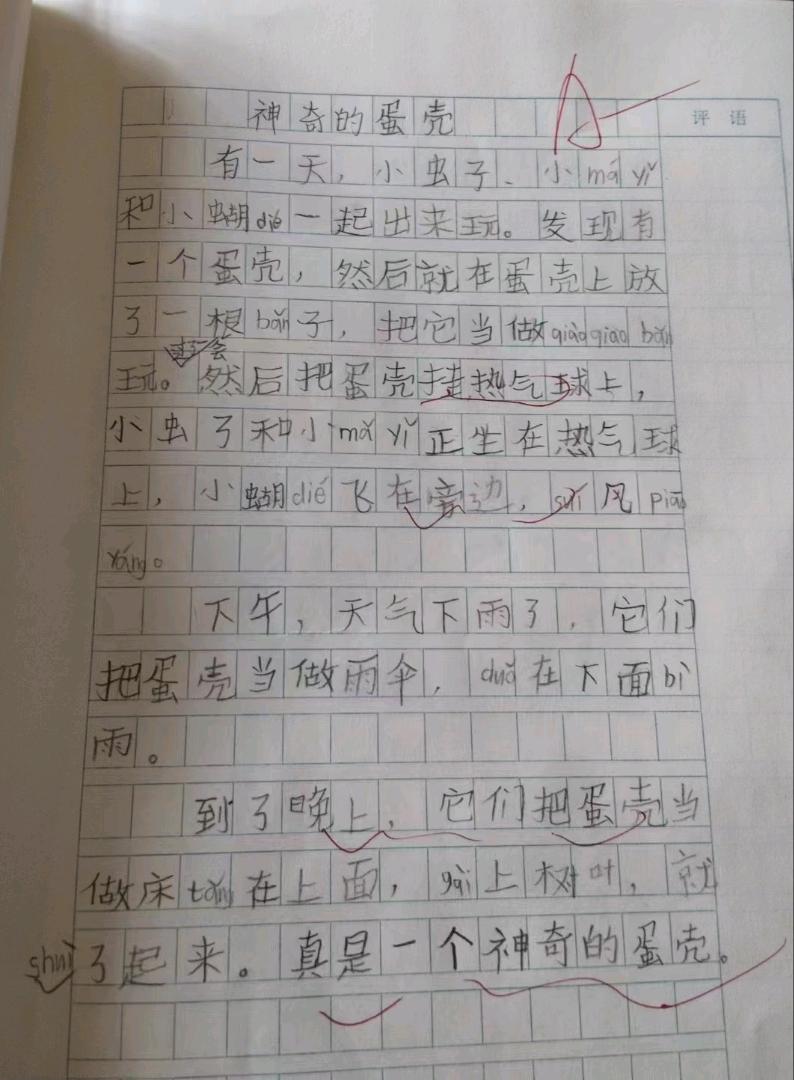 神奇的蛋壳
评语
有一天，小虫子、小mǎ yǐ
和小蝴dié一起出来玩。发现有
一个蛋壳，然后就在蛋壳上放
了一根bǎn子，把它当做qiāoqiāo bǎn
玩。然后把蛋壳挂热气球上，
小虫子和小mǎ yǐ正坐在热气球
上，小蝴dié飞在旁边，suí风piāo
yáng。
下午，天气下雨了，它们
把蛋壳当做雨伞，duǒ在下面bì
雨。
到了晚上，它们把蛋壳当
做床tǎng在上面，gài上树叶，就
shuì了起来。真是一个神奇的蛋壳。